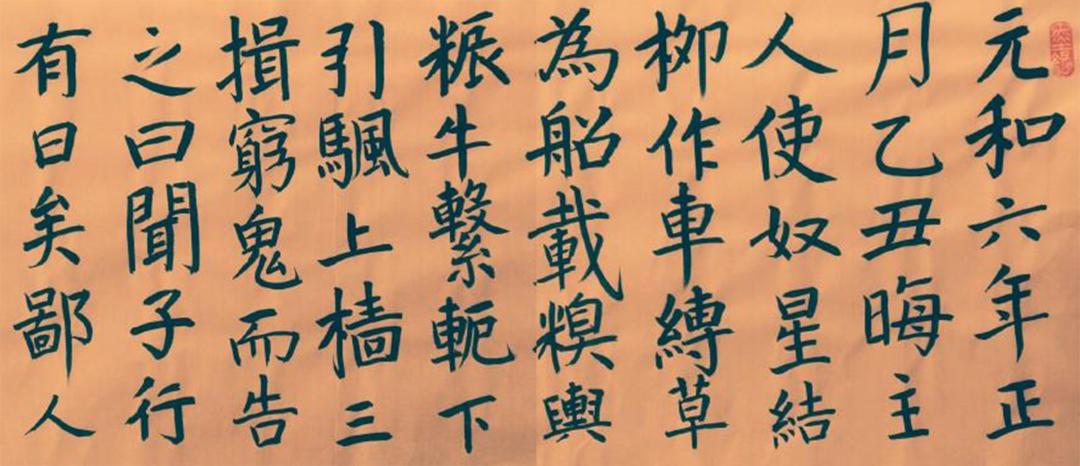 元和六年正
月乙丑晦主
人使奴星結
柳作車縛草
為船載糗輿
粻牛繫軛下
引颿上檣三
揖窮鬼而告
之曰聞子行
有日矣鄙人